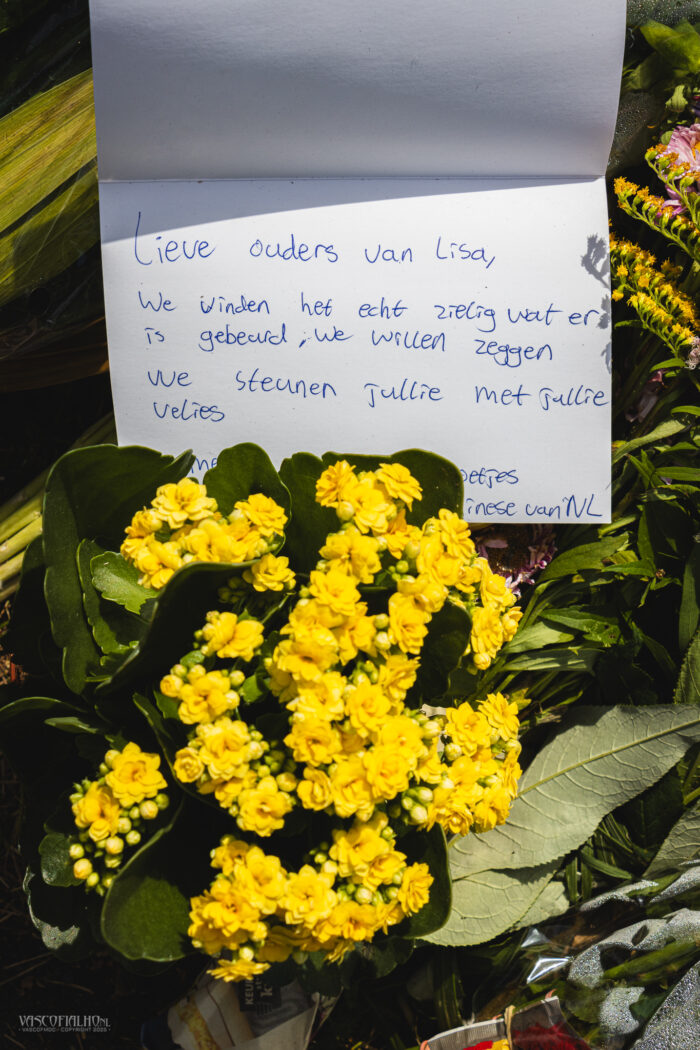 Lieve ouders van Lisa,
We vinden het echt zielig wat er
is gebeurd, we willen zeggen
We steunen jullie met jullie
velies
me
oetjes
inese van NL
VASCOFIALHO.NL